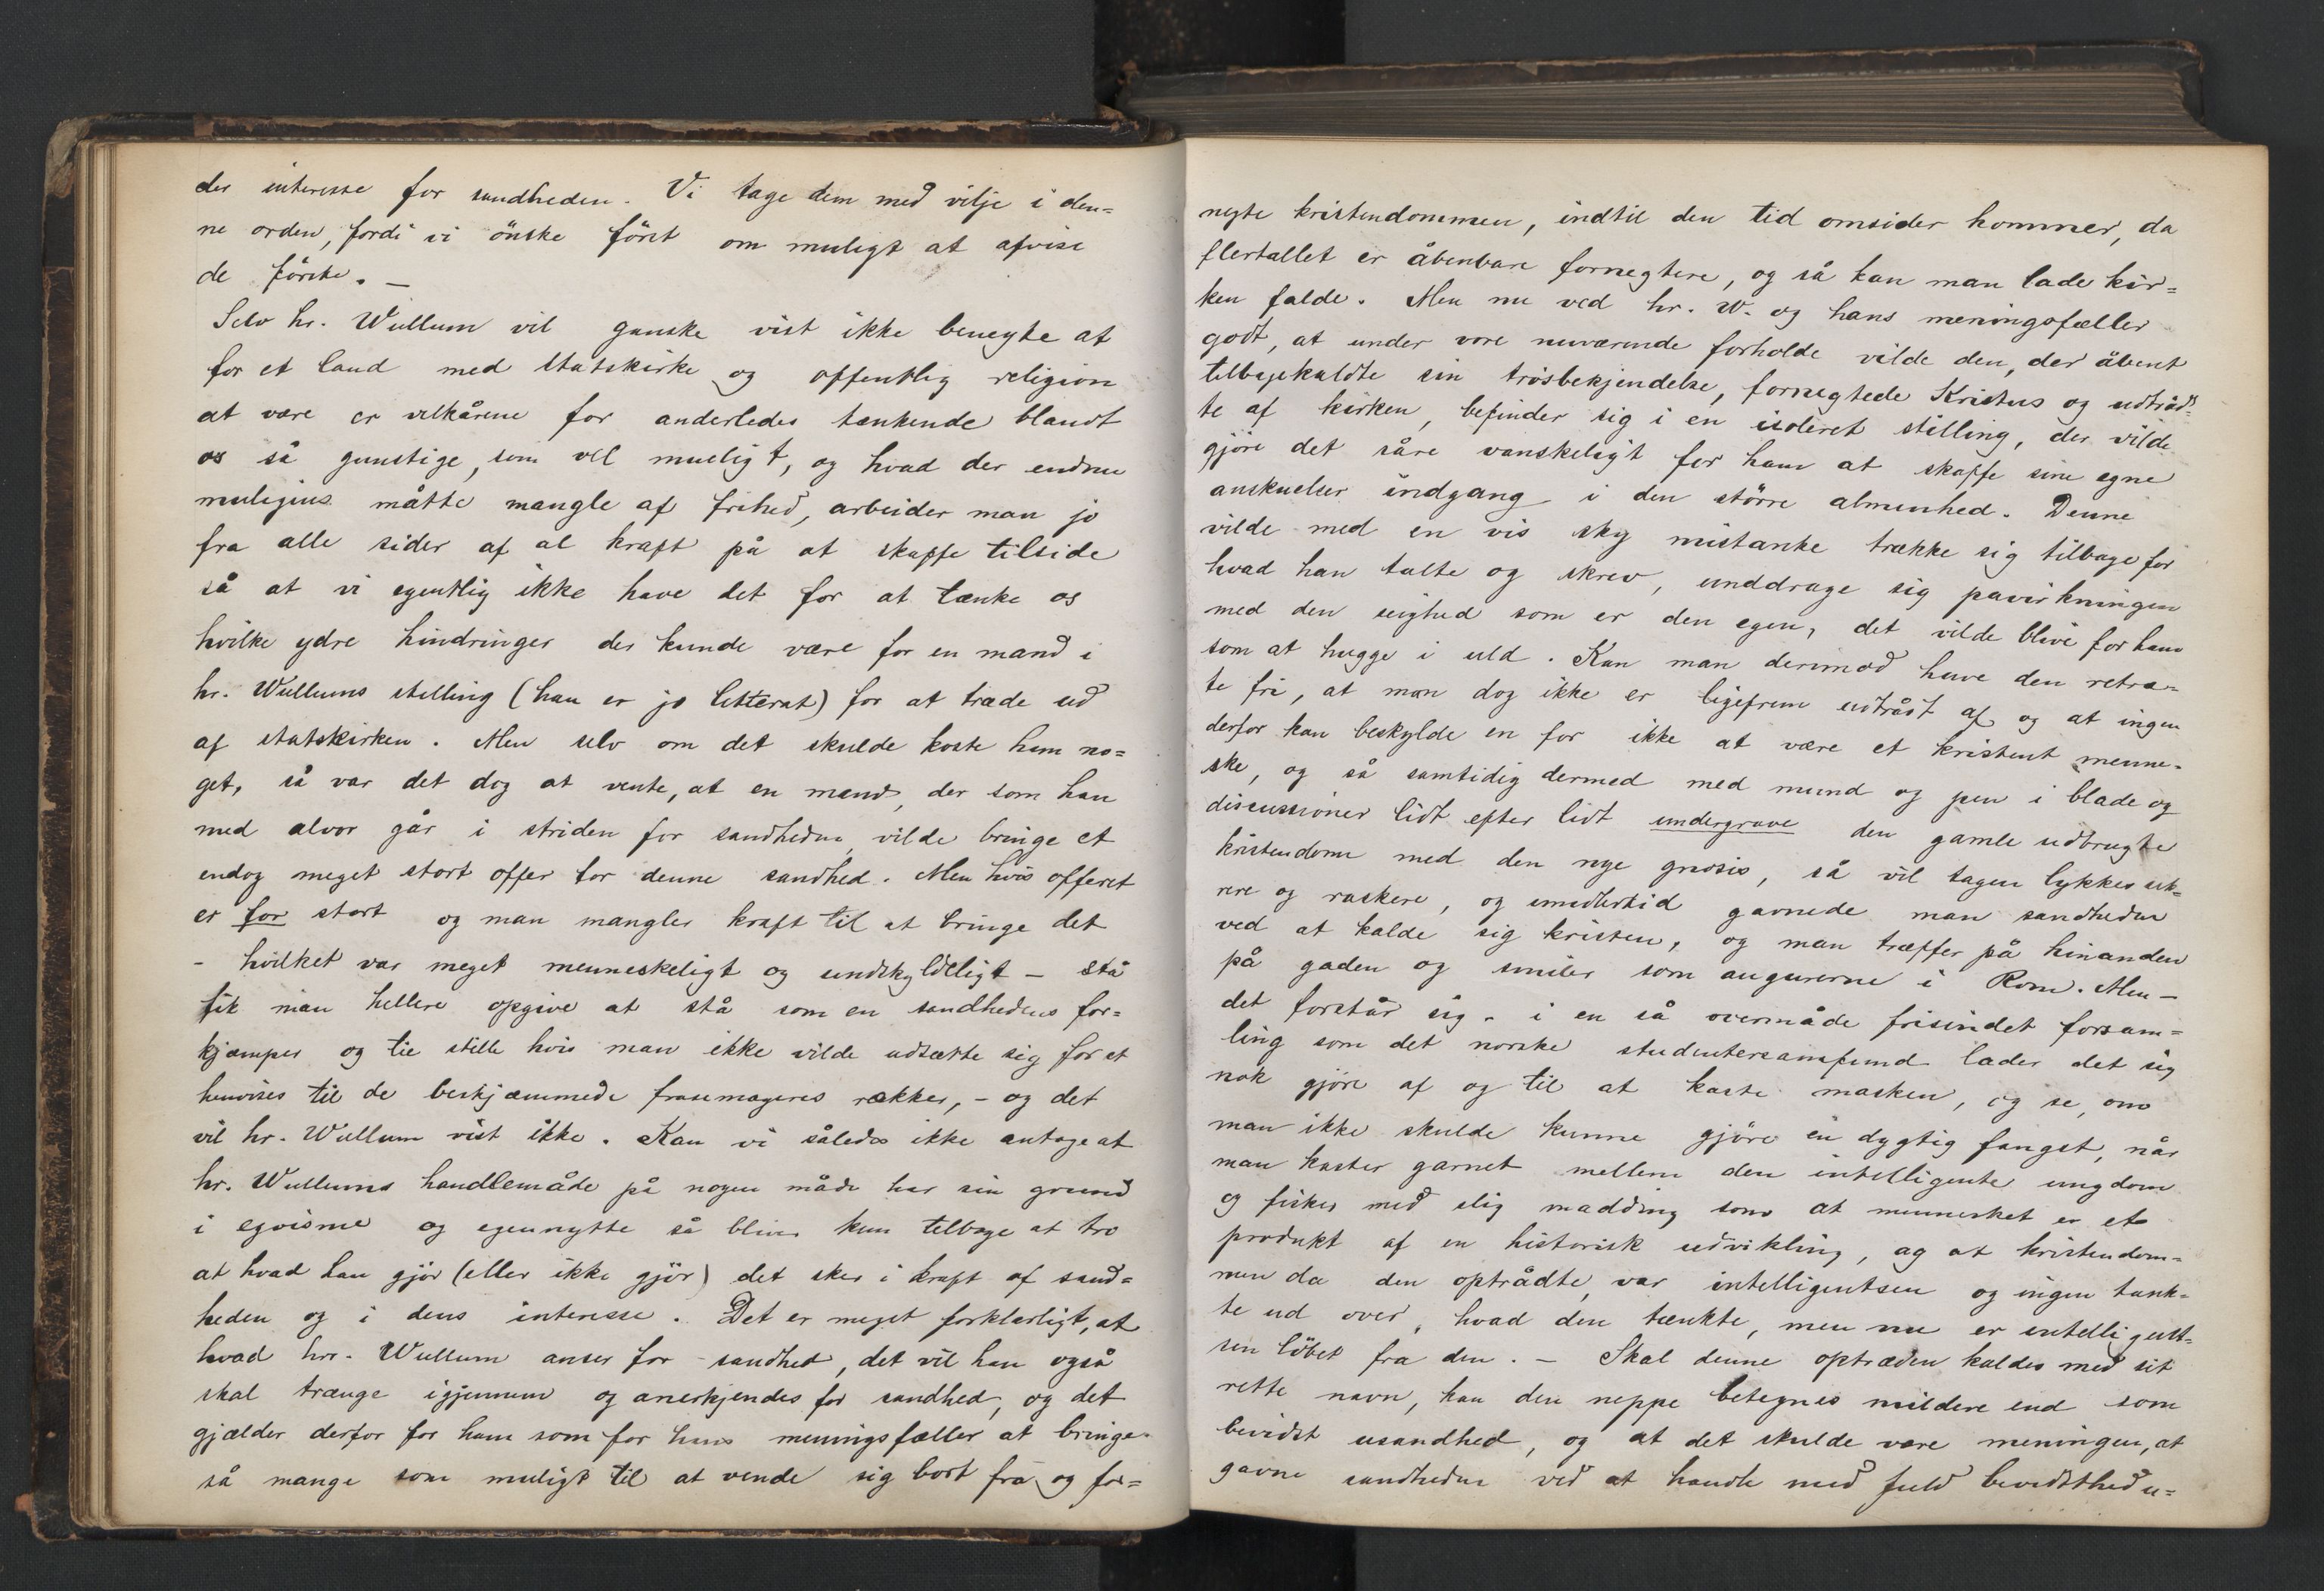 der interesse for sandheden. Vi tage dem med vilje i den=
ne orden, fordi vi önske först om muligt at afvise
de förste. –
Selv hr. Wullum vil ganske vist ikke benegte at
for et land med statskirke og offentlig religion
at være er vilkårene for anderledes tænkende blandt
os så gunstige, som vel mueligt, og hvad der endnu
muligens måtte mangle af frihed, arbeider man jo
fra alle sider af al kraft på at skaffe tilside
så at vi egentlig ikke have det for at tænke os
hvilke ydre hindringer der kunde være for en mand i
hr. Wullums stilling (han er jo litterat) for at træde ud
af statskirken. Men selv om det skulde koste ham no=
get, så var det dog at vente, at en mand, der som han
med alvor går i striden for sandheden, vilde bringe et
endog meget stort offer for denne sandhed. Men hvis offeret
er for stort og man mangler kraft til at bringe det
– hvilket var meget menneskeligt og undskyldeligt – så
fik man hellere opgive at stå som en sandhedens for=
kjæmper og tie stille hvis man ikke vilde udsætte sig for at
henvises til de beskjæmmede frasemageres rækker, – og det
vil hr. Wullum vist ikke. Kan vi således ikke antage at
hr. Wullums handlemåde på nogen måde har sin grund
i egoisme og egennytte så bliver kun tilbage at tro
at hvad han gjör (eller ikke gjör) det sker i kraft af sand=
heden og i dens interesse. Det er meget forklarligt, at
hvad hrr. Wullum anser for sandhed, det vil han også
skal trænge igjennem og anerkjendes for sandhed, og det
gjælder derfor for ham som for hans meningsfæller at bringe
så mange som muligt til at vende sig bort fra og for=
negte kristendommen, indtil den tid omsider kommer, da
flertallet er åbenbare fornegtere, og så kan man lade kir=
ken falde. Men nu ved hr. W. og hans meningsfæller
godt, at under vore nuværende forholde vilde den, der åbent
tilbagekaldte sin trösbekjendelse, fornegtede Kristus og udtråd=
te af kirken, befinder sig i en isoleret stilling, der vilde
gjöre det såre vanskeligt for ham at skaffe sine egne
anskuelser indgang i den större almenhed. Denne
vilde med en vis sky mistanke trække sig tilbage for
hvad han talte og skrev, unddrage sig påvirkningen
med den seighed som er den egen, det vilde blive for ham
som at hugge i uld. Kan man derimod have den retræ=
te fri, at man dog ikke er ligefrem udtrådt af og at ingen
derfor kan beskylde en for ikke at være et kristent menne=
ske, og så samtidig dermed med mund og pen i blade og
discussioner lidt efter lidt undergrave den gamle udbrugte
kristendom med den nye gnosis, så vil sagen lykkes sik=
rere og raskere, og imidlertid gavnede man sandheden
ved at kalde sig kristen, og man træffer på hinanden
på gaden og smiler som augurerne i Rom. Men –
det forstår sig – i en så overmåde frisindet forsam=
ling som det norske studentersamfund lader det sig
nok gjöre af og til at kaste masken, og se, om
man ikke skulde kunne gjöre en dygtig fangst, når
man kaster garnet mellem den intelligente ungdom
og fisker med slig madding som at mennesket er et
produkt af en historisk udvikling, og at kristendom=
men da den optrådte, var intelligentsen og ingen tænk=
te ud over, hvad den tænkte, men nu er intelligent=
sen löbet fra den. – Skal denne optræden kaldes med sit
rette navn, kan den neppe betegnes mildere end som
bevidst usandhed, og at det skulde være meningen, at
gavne sandheden ved at handle med fuld bevidsthed u=